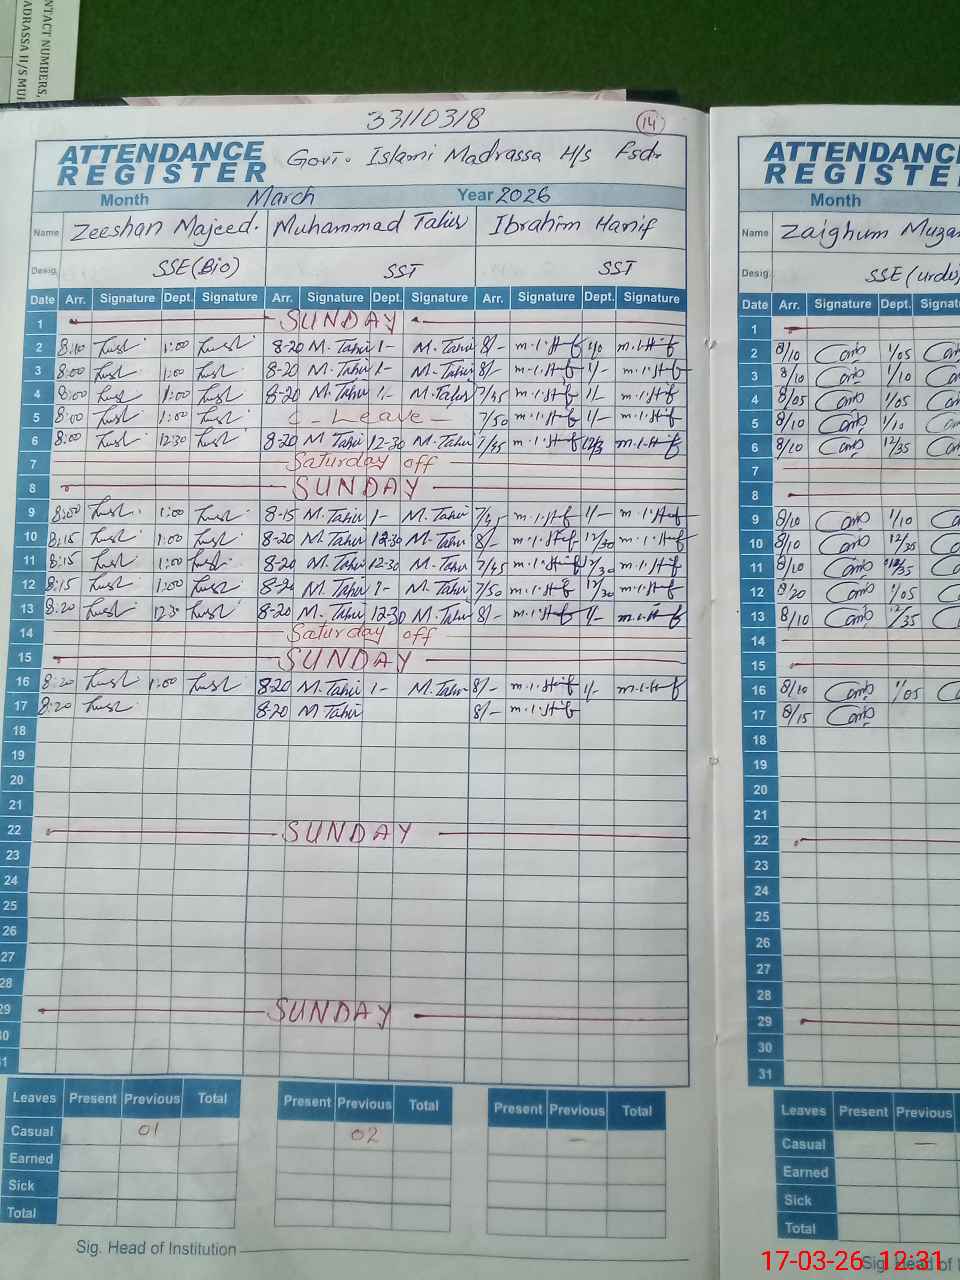 NTACT NUMBERS,
ADRASSA H/S MUH
33110318
14
ATTENDANCE REGISTER
Govt. Islami Madrassa H/S Fsd.
Month March Year 2026
Name Zeeshan Majeed. Muhammad Tahir Ibrahim Hanif
Desig. SSE(Bio) SST SST
Date Arr. Signature Dept. Signature Arr. Signature Dept. Signature Arr. Signature Dept. Signature
1 SUNDAY
2 8:10 1:00 8-20 M. Tahir 1- M. Tahir 8/-
3 8:00 1:00 8-20 M. Tahir 1- M. Tahir 8/- 1/-
4 8:00 1:00 8-20 M. Tahir 1- M. Tahir 7/45 1/-
5 8:00 1:00 C - Leave - 7/50 1/-
6 8:00 12:30 8-20 M Tahir 12-30 M. Tahir 7/45
7 Saturday off
8 SUNDAY
9 8:00 1:00 8-15 M. Tahir 1- M. Tahir 1/-
10 8:15 1:00 8-20 M. Tahir 12-30 M. Tahir 8/- 12/30
11 8:15 1:00 8-20 M. Tahir 12-30 M. Tahir 7/45
12 8:15 1:00 8-20 M. Tahir 1- M. Tahir 7/50 12/30
13 8:20 12:30 8-20 M. Tahir 12-30 M. Tahir 8/- 1/-
14 Saturday off
15 SUNDAY
16 8:20 1:00 8-20 M. Tahir 1- M. Tahir 8/- 1/-
17 8:20 8-20 M Tahir 8/-
18
19
20
21
22 SUNDAY
23
24
25
26
27
28
29 SUNDAY
30
31
Leaves Present Previous Total Present Previous Total Present Previous Total
Casual 01 02 -
Earned
Sick
Total
Sig. Head of Institution
ATTENDANC
REGISTE
Month
Name Zaighum Muza
Desig. SSE(urdu)
Date Arr. Signature Dept. Signat
1
2 8/10 1/05
3 8/10 1/10
4 8/05 1/05
5 8/10 1/10
6 8/10 12/35
7
8
9 8/10 1/10
10 8/10 12/35
11 8/10
12 8/20 1/05
13 8/10 12/35
14
15
16 8/10 1/05
17 8/15
18
19
20
21
22
23
24
25
26
27
28
29
30
31
Leaves Present Previous
Casual -
Earned
Sick
Total
Sig. Head of I
17-03-26 12:31